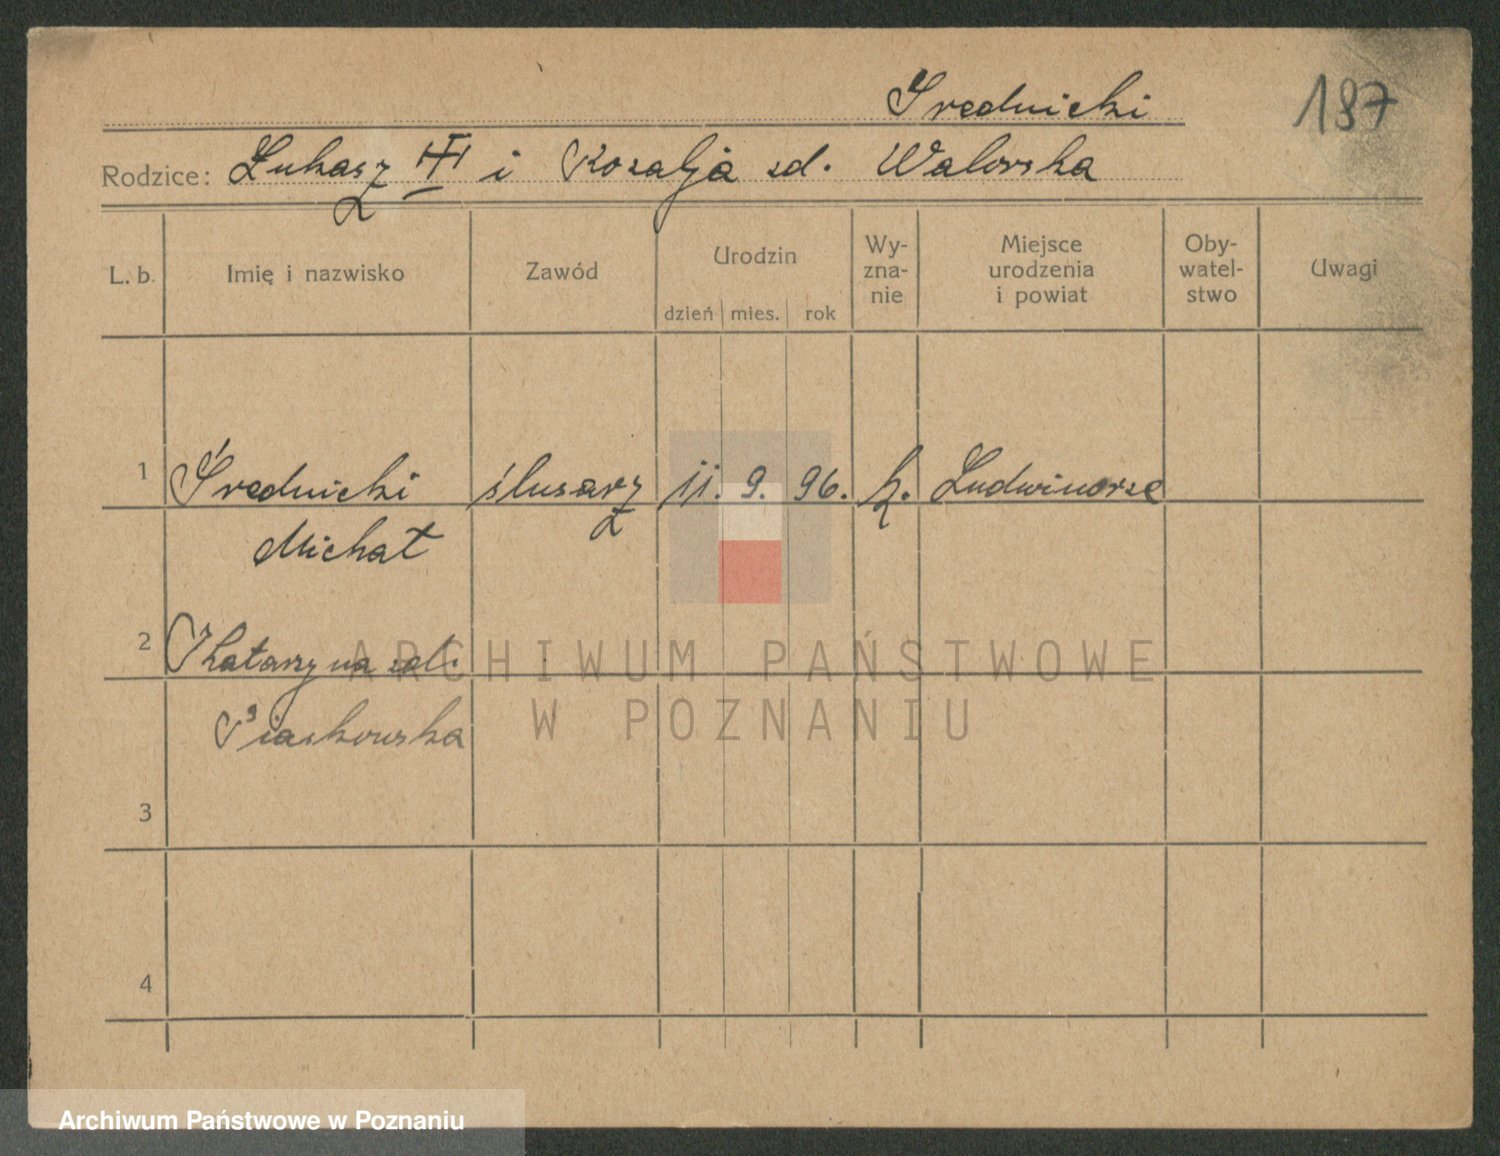 Średnicki
187
Rodzice: Łukasz III i Rozalja zd. Walorska
L. b. Imię i nazwisko Zawód Urodzin dzień mies. rok Wyznanie Miejsce urodzenia i powiat Obywatelstwo Uwagi
1 Średnicki ślusarz 11. 9. 96. k. Ludwinorze
Michał
2 Katarzyna zd.
Piaskowska
3
4
ARCHIWUM PAŃSTWOWE
W POZNANIU
Archiwum Państwowe w Poznaniu